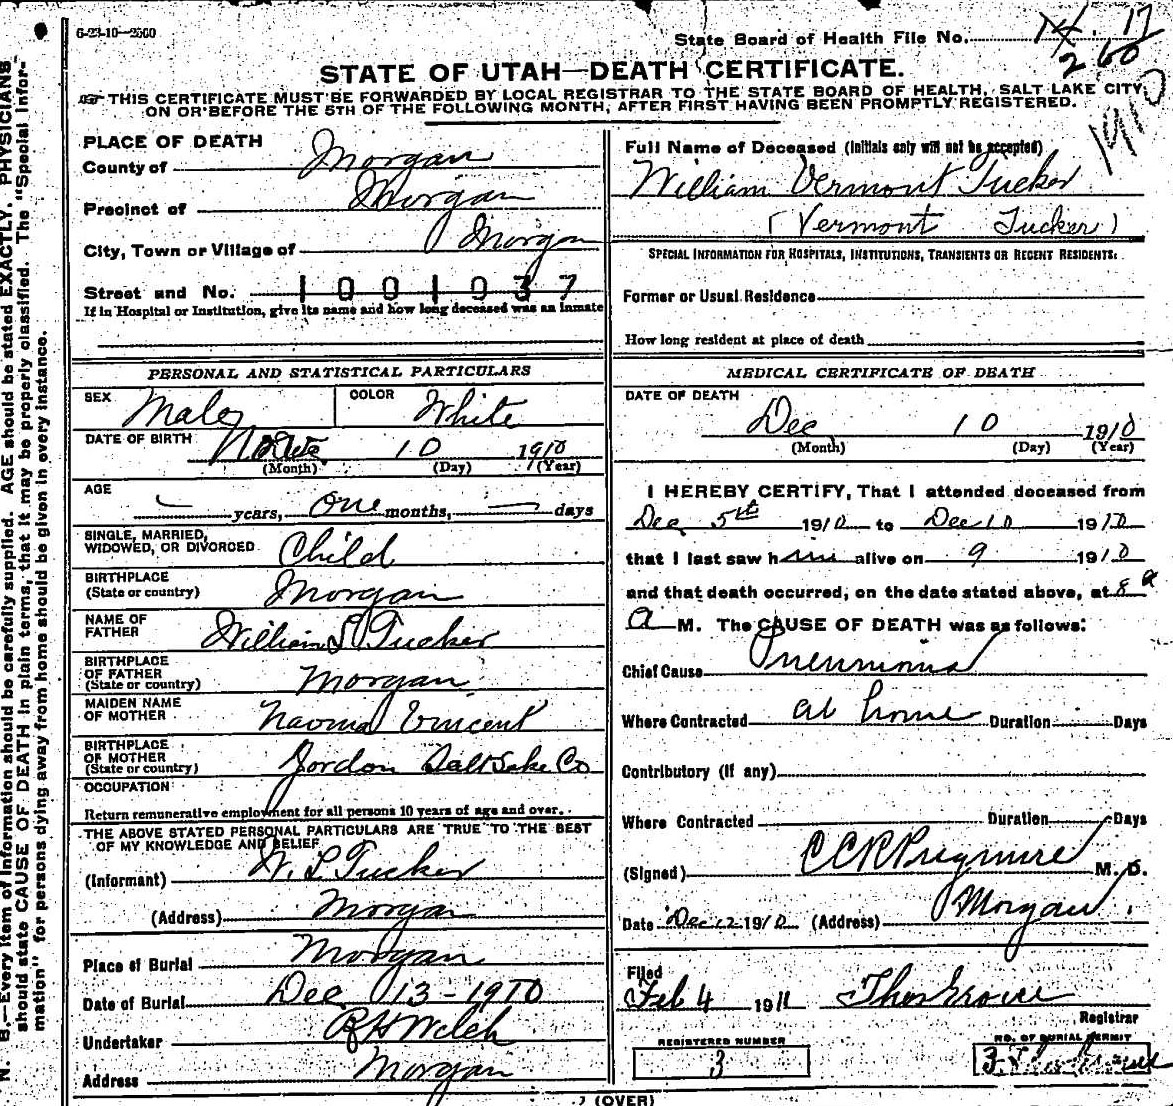 6-23-10-2500
State Board of Health File No. 17
260
1910
STATE OF UTAH—DEATH CERTIFICATE.
THIS CERTIFICATE MUST BE FORWARDED BY LOCAL REGISTRAR TO THE STATE BOARD OF HEALTH, SALT LAKE CITY,
ON OR BEFORE THE 5TH OF THE FOLLOWING MONTH, AFTER FIRST HAVING BEEN PROMPTLY REGISTERED.
PLACE OF DEATH
County of Morgan
Precinct of Morgan
City, Town or Village of Morgan
Street and No. 1001937
If in Hospital or Institution, give its name and how long deceased was an inmate
PERSONAL AND STATISTICAL PARTICULARS
SEX Male COLOR White
DATE OF BIRTH 10 1910
(Month) (Day) (Year)
AGE
— years, One months, — days
SINGLE, MARRIED,
WIDOWED, OR DIVORCED Child
BIRTHPLACE
(State or country) Morgan
NAME OF
FATHER William L Tucker
BIRTHPLACE
OF FATHER
(State or country) Morgan
MAIDEN NAME
OF MOTHER Naoma Vincent
BIRTHPLACE
OF MOTHER
(State or country) Jordon Salt Lake Co
OCCUPATION
Return remunerative employment for all persons 10 years of age and over.
THE ABOVE STATED PERSONAL PARTICULARS ARE TRUE TO THE BEST
OF MY KNOWLEDGE AND BELIEF
(Informant) W. L Tucker
(Address) Morgan
Place of Burial Morgan
Date of Burial Dec 13-1910
Undertaker R H Welch
Address Morgan
Full Name of Deceased (Initials only will not be accepted)
William Vermont Tucker
(Vermont Tucker)
SPECIAL INFORMATION FOR HOSPITALS, INSTITUTIONS, TRANSIENTS OR RECENT RESIDENTS:
Former or Usual Residence
How long resident at place of death
MEDICAL CERTIFICATE OF DEATH
DATE OF DEATH
Dec 10 1910
(Month) (Day) (Year)
I HEREBY CERTIFY, That I attended deceased from
Dec 5th 1910 to Dec 10 1910
that I last saw him alive on 9 1910
and that death occurred, on the date stated above, at 8 a
a M. The CAUSE OF DEATH was as follows:
Chief Cause Pneumonia
Where Contracted at home Duration Days
Contributory (if any)
Where Contracted Duration Days
(Signed) M. D.
Date Dec 12 1910 (Address) Morgan
Filed
Feb 4 1911
Registrar
REGISTERED NUMBER
3
NO. OF BURIAL PERMIT
3
(OVER)
N. B.—Every item of information should be carefully supplied. AGE should be stated EXACTLY. PHYSICIANS
should state CAUSE OF DEATH in plain terms, that it may be properly classified. The "Special Infor-
mation" for persons dying away from home should be given in every instance.